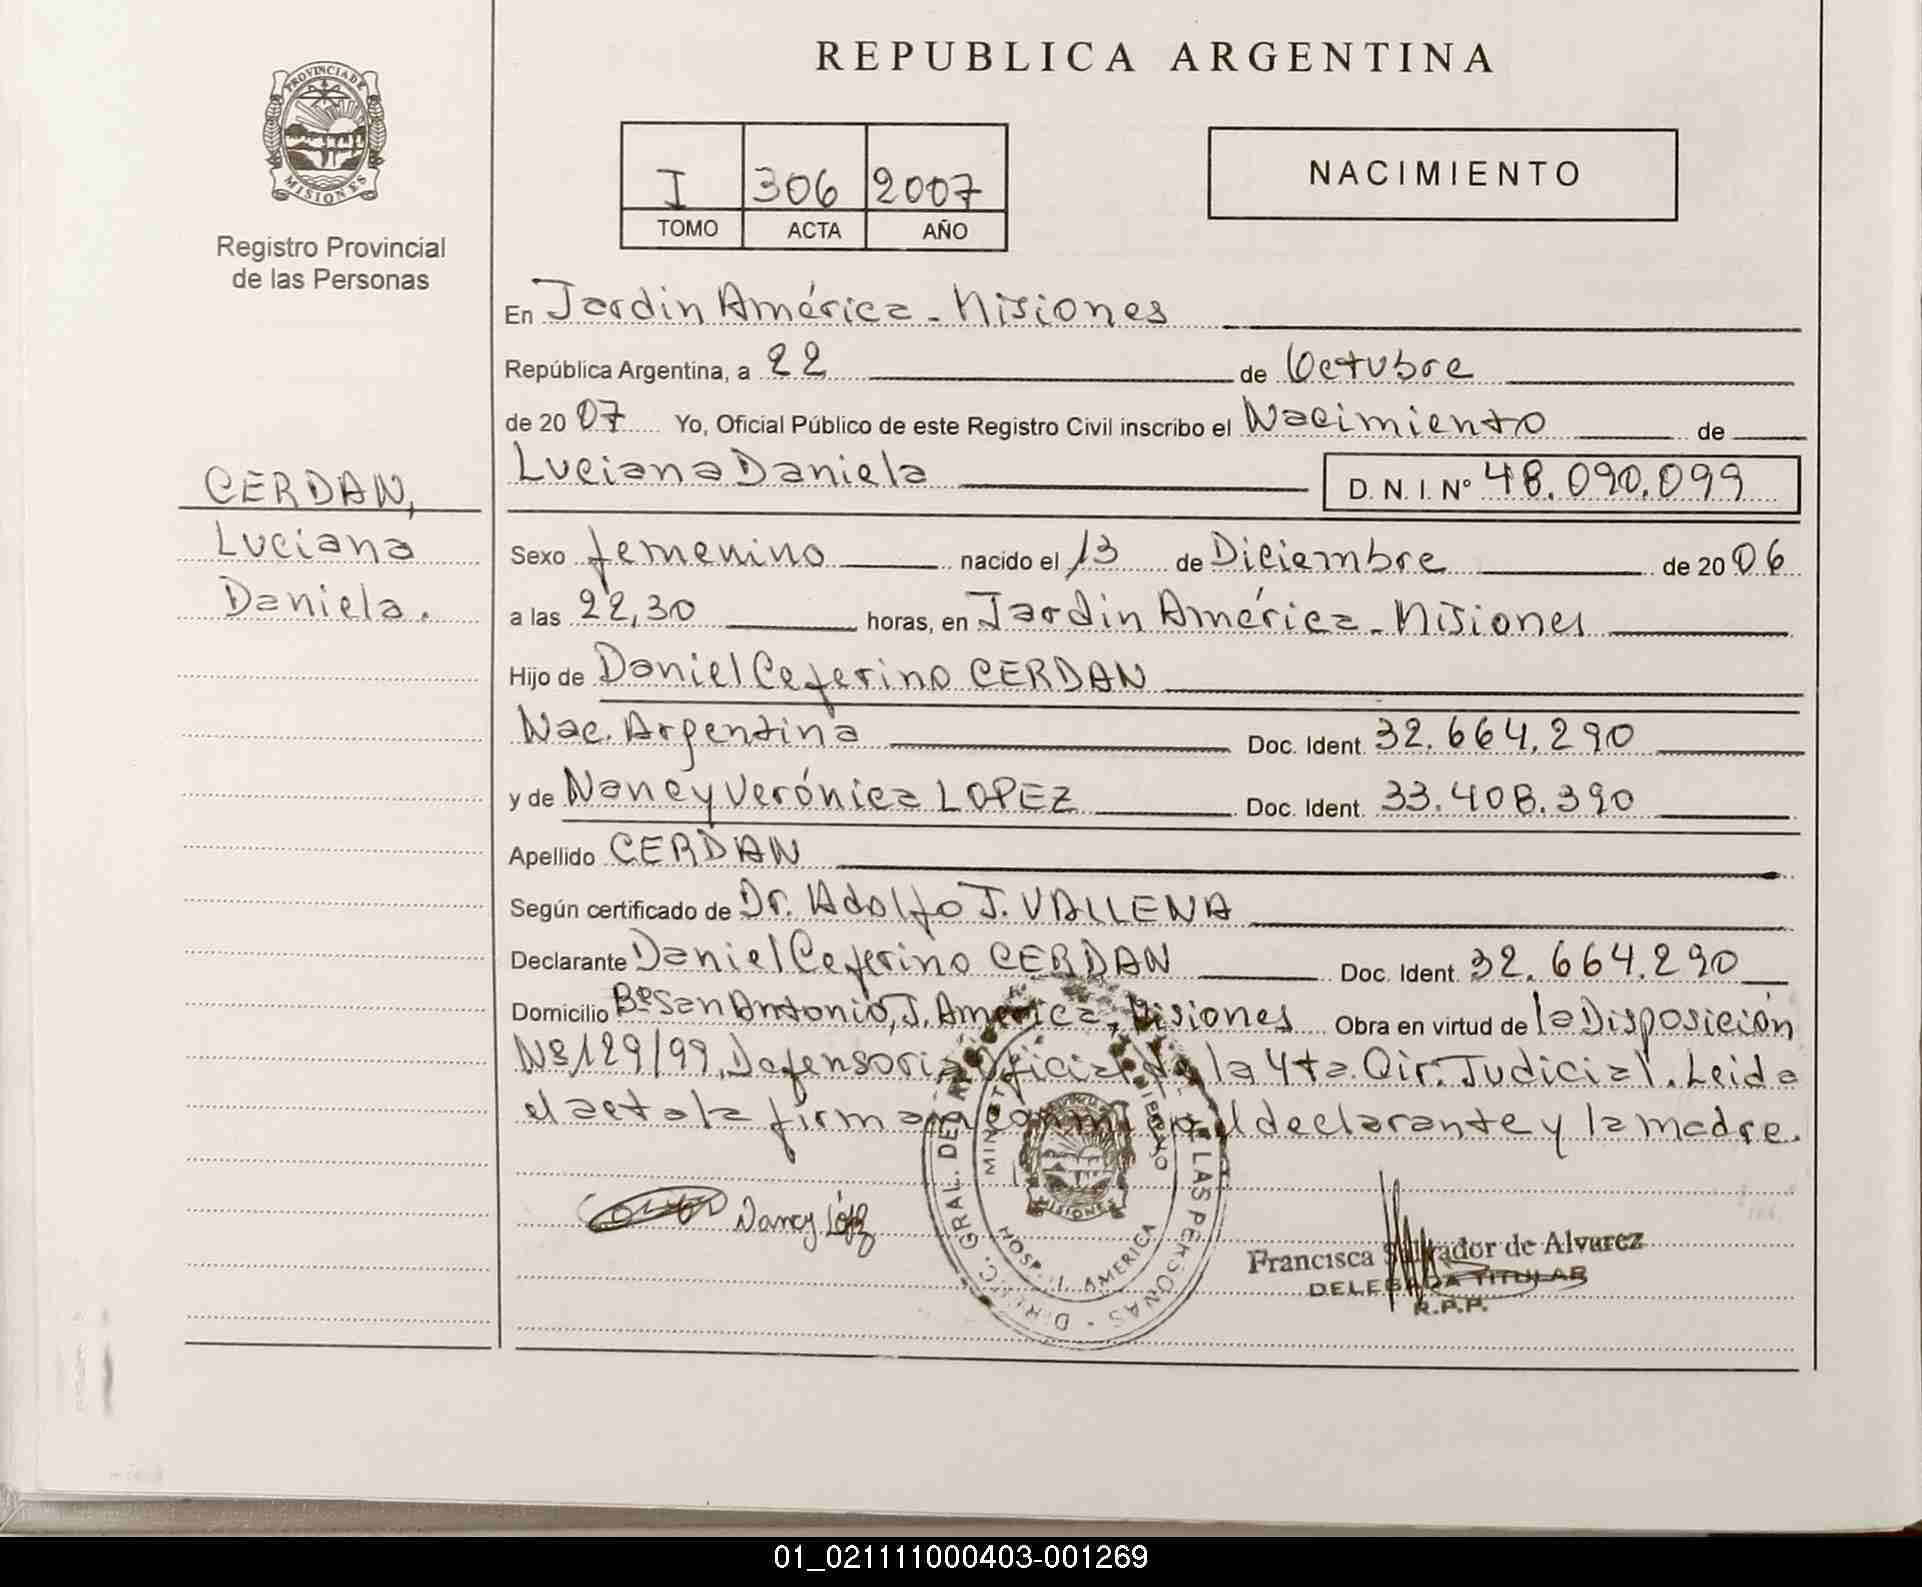 REPUBLICA ARGENTINA
PROVINCIA DE
MISIONES
Registro Provincial
de las Personas
I 306 2007
TOMO ACTA AÑO
NACIMIENTO
CERDAN,
Luciana
Daniela.
En Jardin América - Misiones
República Argentina, a 22 de Octubre
de 2007 Yo, Oficial Público de este Registro Civil inscribo el Nacimiento de
Luciana Daniela D. N. I. Nº 48.090.099
Sexo femenino nacido el 13 de Diciembre de 2006
a las 22,30 horas, en Jardin América - Misiones
Hijo de Daniel Ceferino CERDAN
Nac. Argentina Doc. Ident. 32.664.290
y de Nancy Verónica LOPEZ Doc. Ident. 33.408.390
Apellido CERDAN
Según certificado de Dr. Adolfo J. VALLENA
Declarante Daniel Ceferino CERDAN Doc. Ident. 32.664.290
Domicilio Bº San Antonio, J. América, Misiones Obra en virtud de la Disposición
Nº 129/99, Defensoria Oficial de la 4ta. Cir. Judicial. Leida
el acta la firman conmigo el declarante y la madre.
Nancy López
DIREC. GRAL. DEL LAS PERSONAS
HOSP. J. AMERICA
MISIONES
Francisca Salvador de Alvarez
DELEGADA TITULAR
R.P.P.
01_021111000403-001269